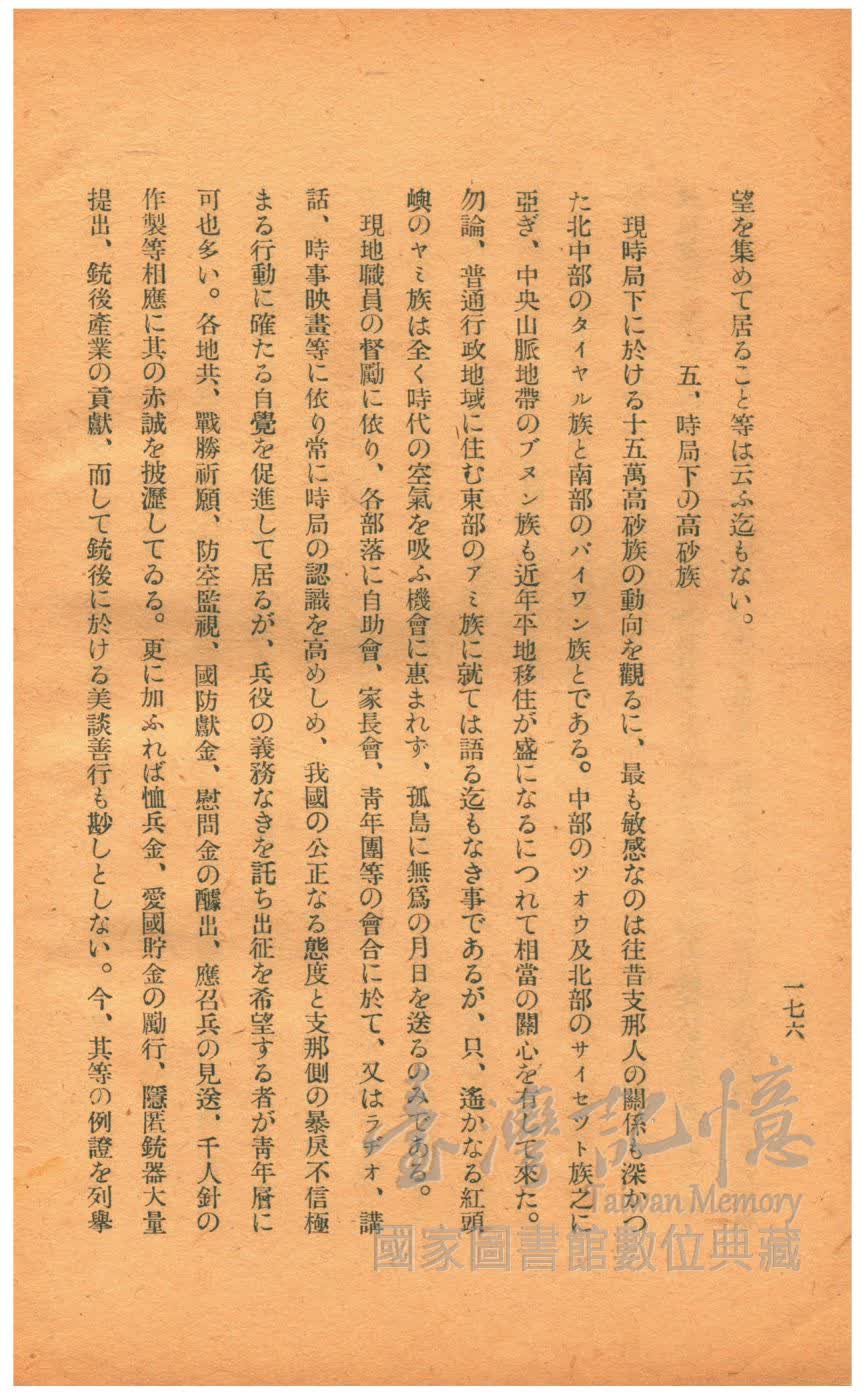 一七六
望を集めて居ること等は云ふ迄もない。
五、時局下の高砂族
現時局下に於ける十五萬高砂族の動向を觀るに、最も敏感なのは往昔支那人の關係も深かつ
た北中部のタイヤル族と南部のパイワン族とである。中部のツオウ及北部のサイセツト族之に
亞ぎ、中央山脈地帶のブヌン族も近年平地移住が盛になるにつれて相當の關心を有して來た。
勿論、普通行政地域に住む東部のアミ族に就ては語る迄もなき事であるが、只、遙かなる紅頭
嶼のヤミ族は全く時代の空氣を吸ふ機會に惠まれず、孤島に無爲の月日を送るのみである。
現地職員の督勵に依り、各部落に自助會、家長會、靑年團等の會合に於て、又はラヂオ、講
話、時事映畫等に依り常に時局の認識を高めしめ、我國の公正なる態度と支那側の暴戾不信極
まる行動に確たる自覺を促進して居るが、兵役の義務なきを託ち出征を希望する者が靑年層に
可也多い。各地共、戰勝祈願、防空監視、國防獻金、慰問金の醵出、應召兵の見送、千人針の
作製等相應に其の赤誠を披瀝してゐる。更に加ふれば恤兵金、愛國貯金の勵行、隱匿銃器大量
提出、銃後產業の貢獻、而して銃後に於ける美談善行も尠しとしない。今、其等の例證を列擧
臺灣記憶
Taiwan Memory
國家圖書館數位典藏